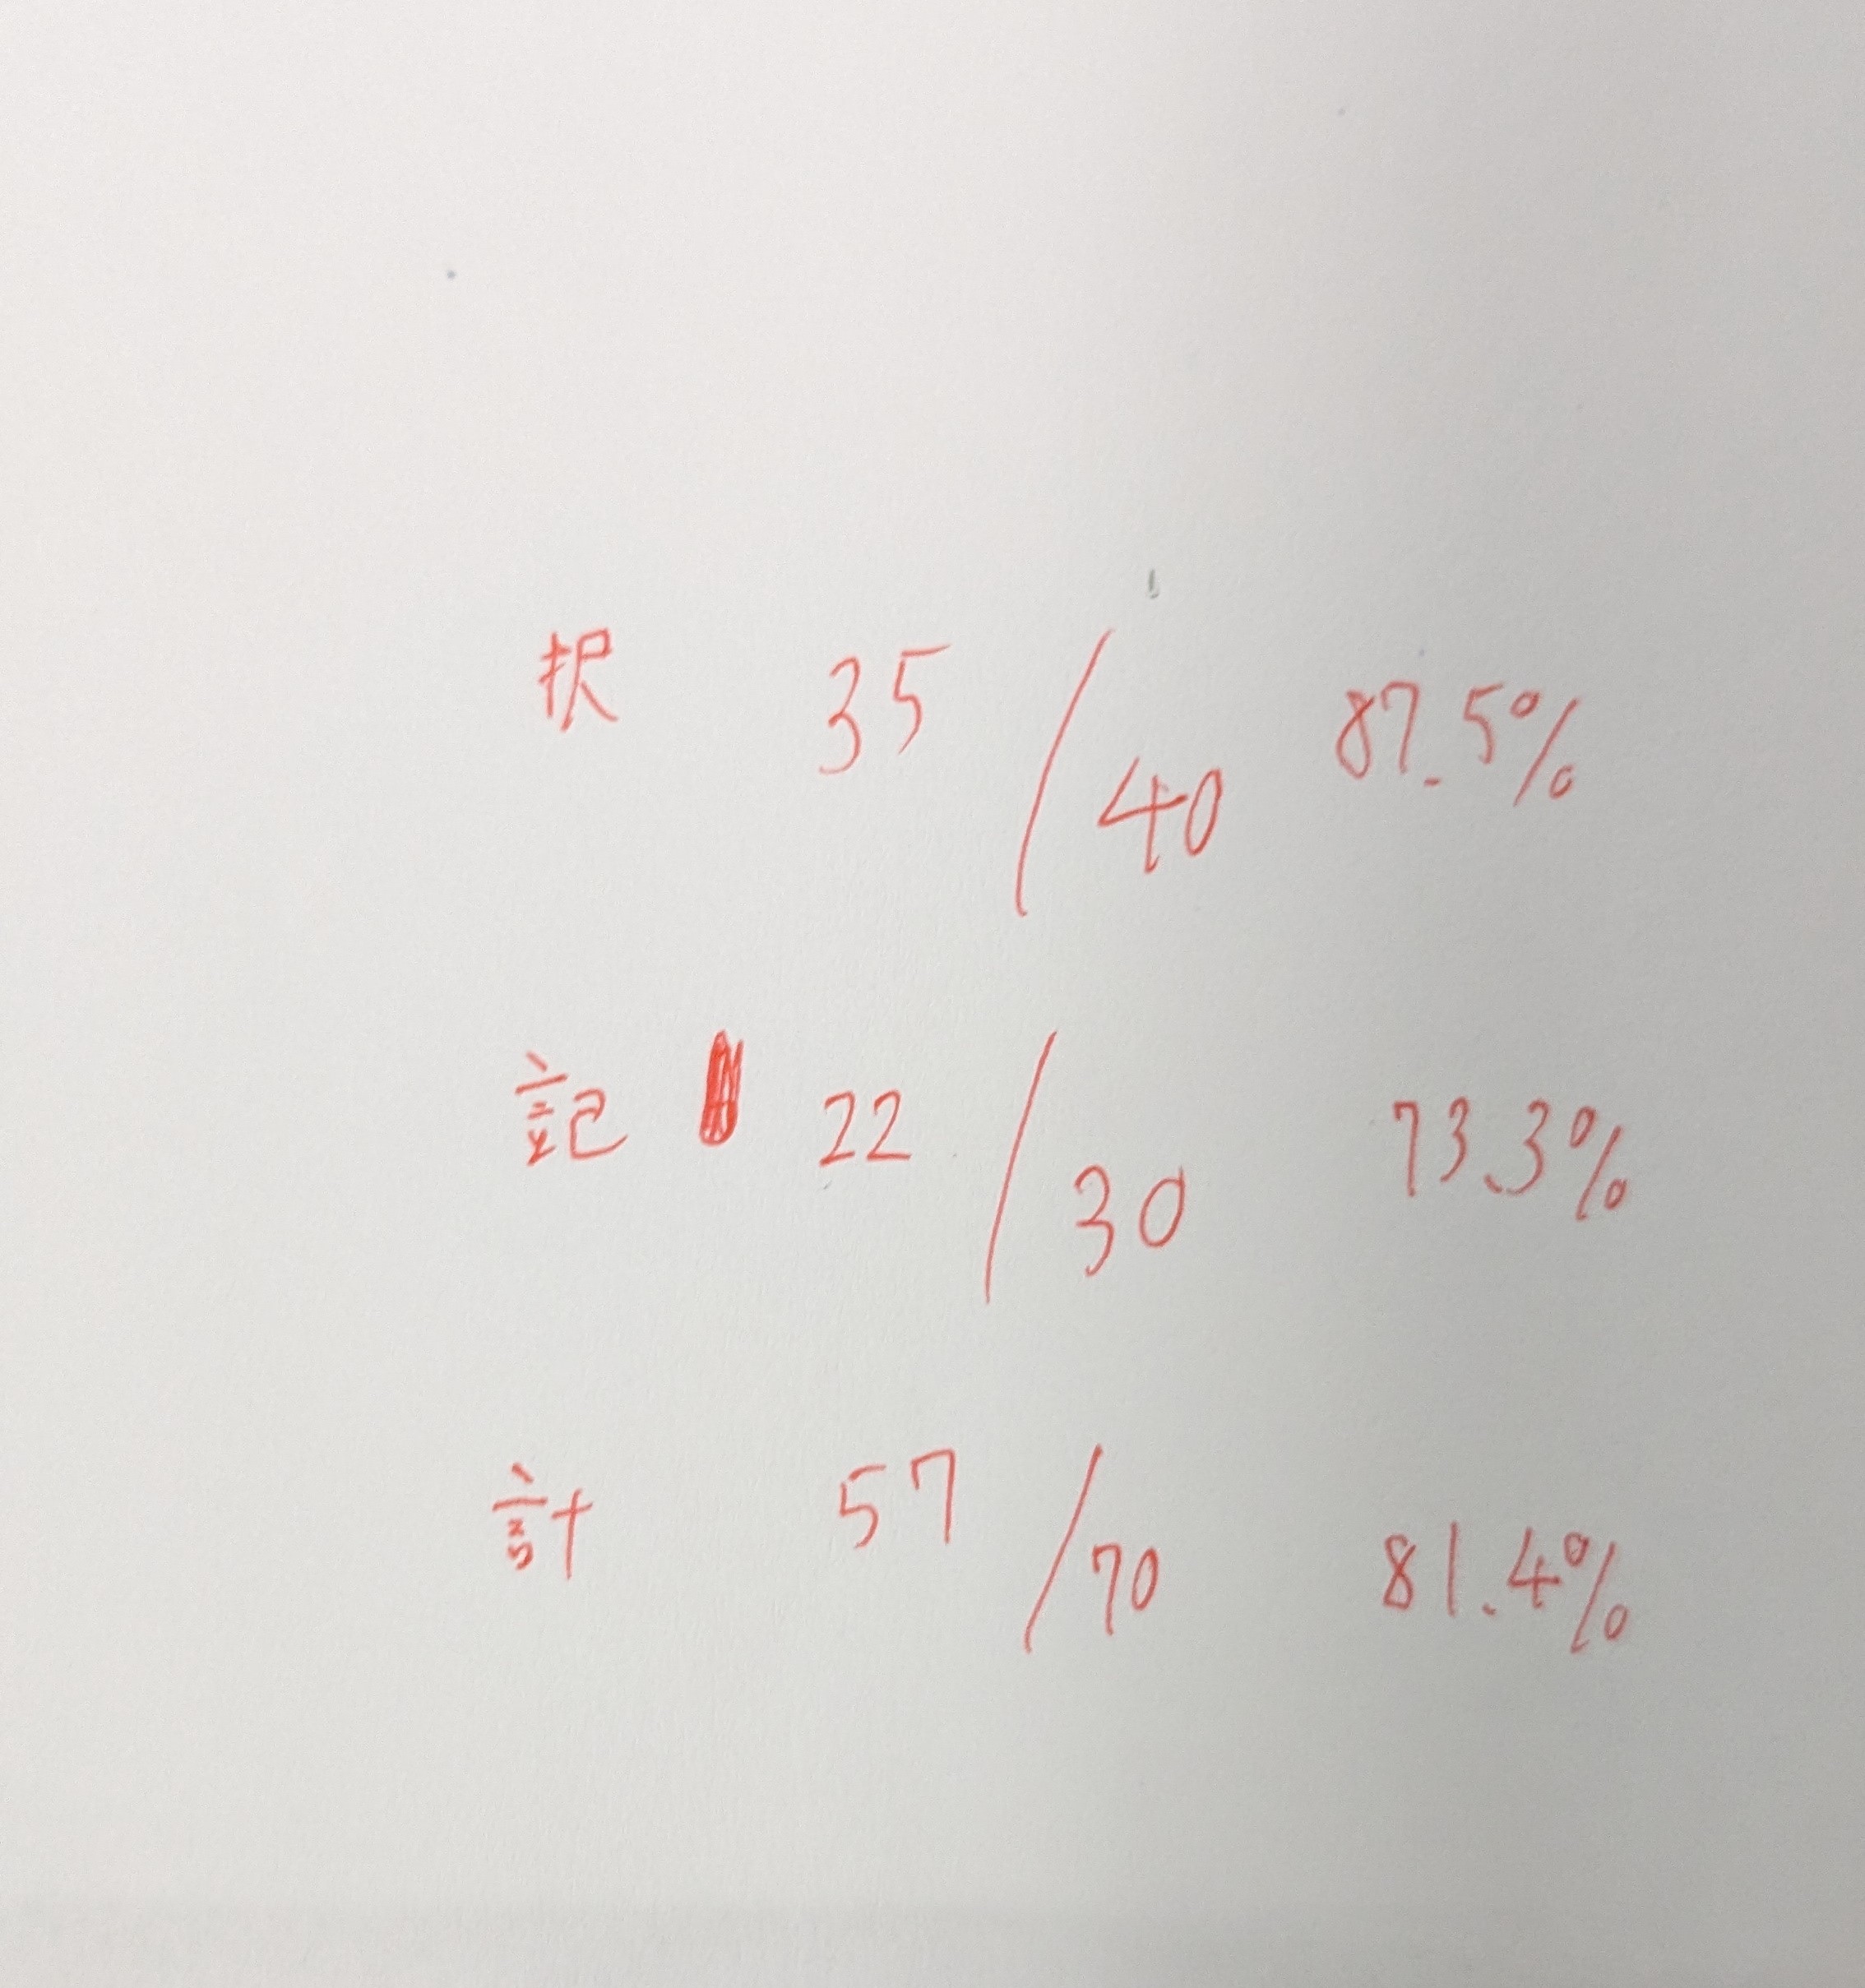 択 35/40 87.5%
記 22/30 73.3%
計 57/70 81.4%